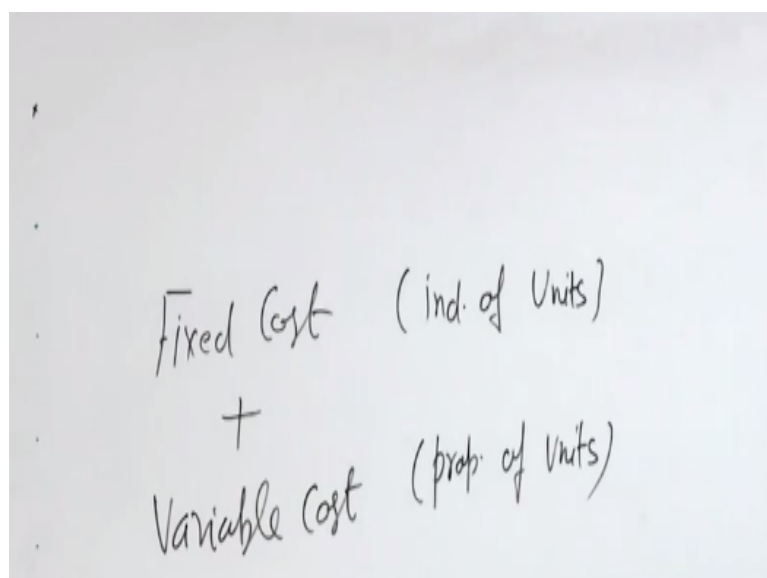 Fixed Cost (ind. of Units)
+
Variable Cost (prop. of Units)